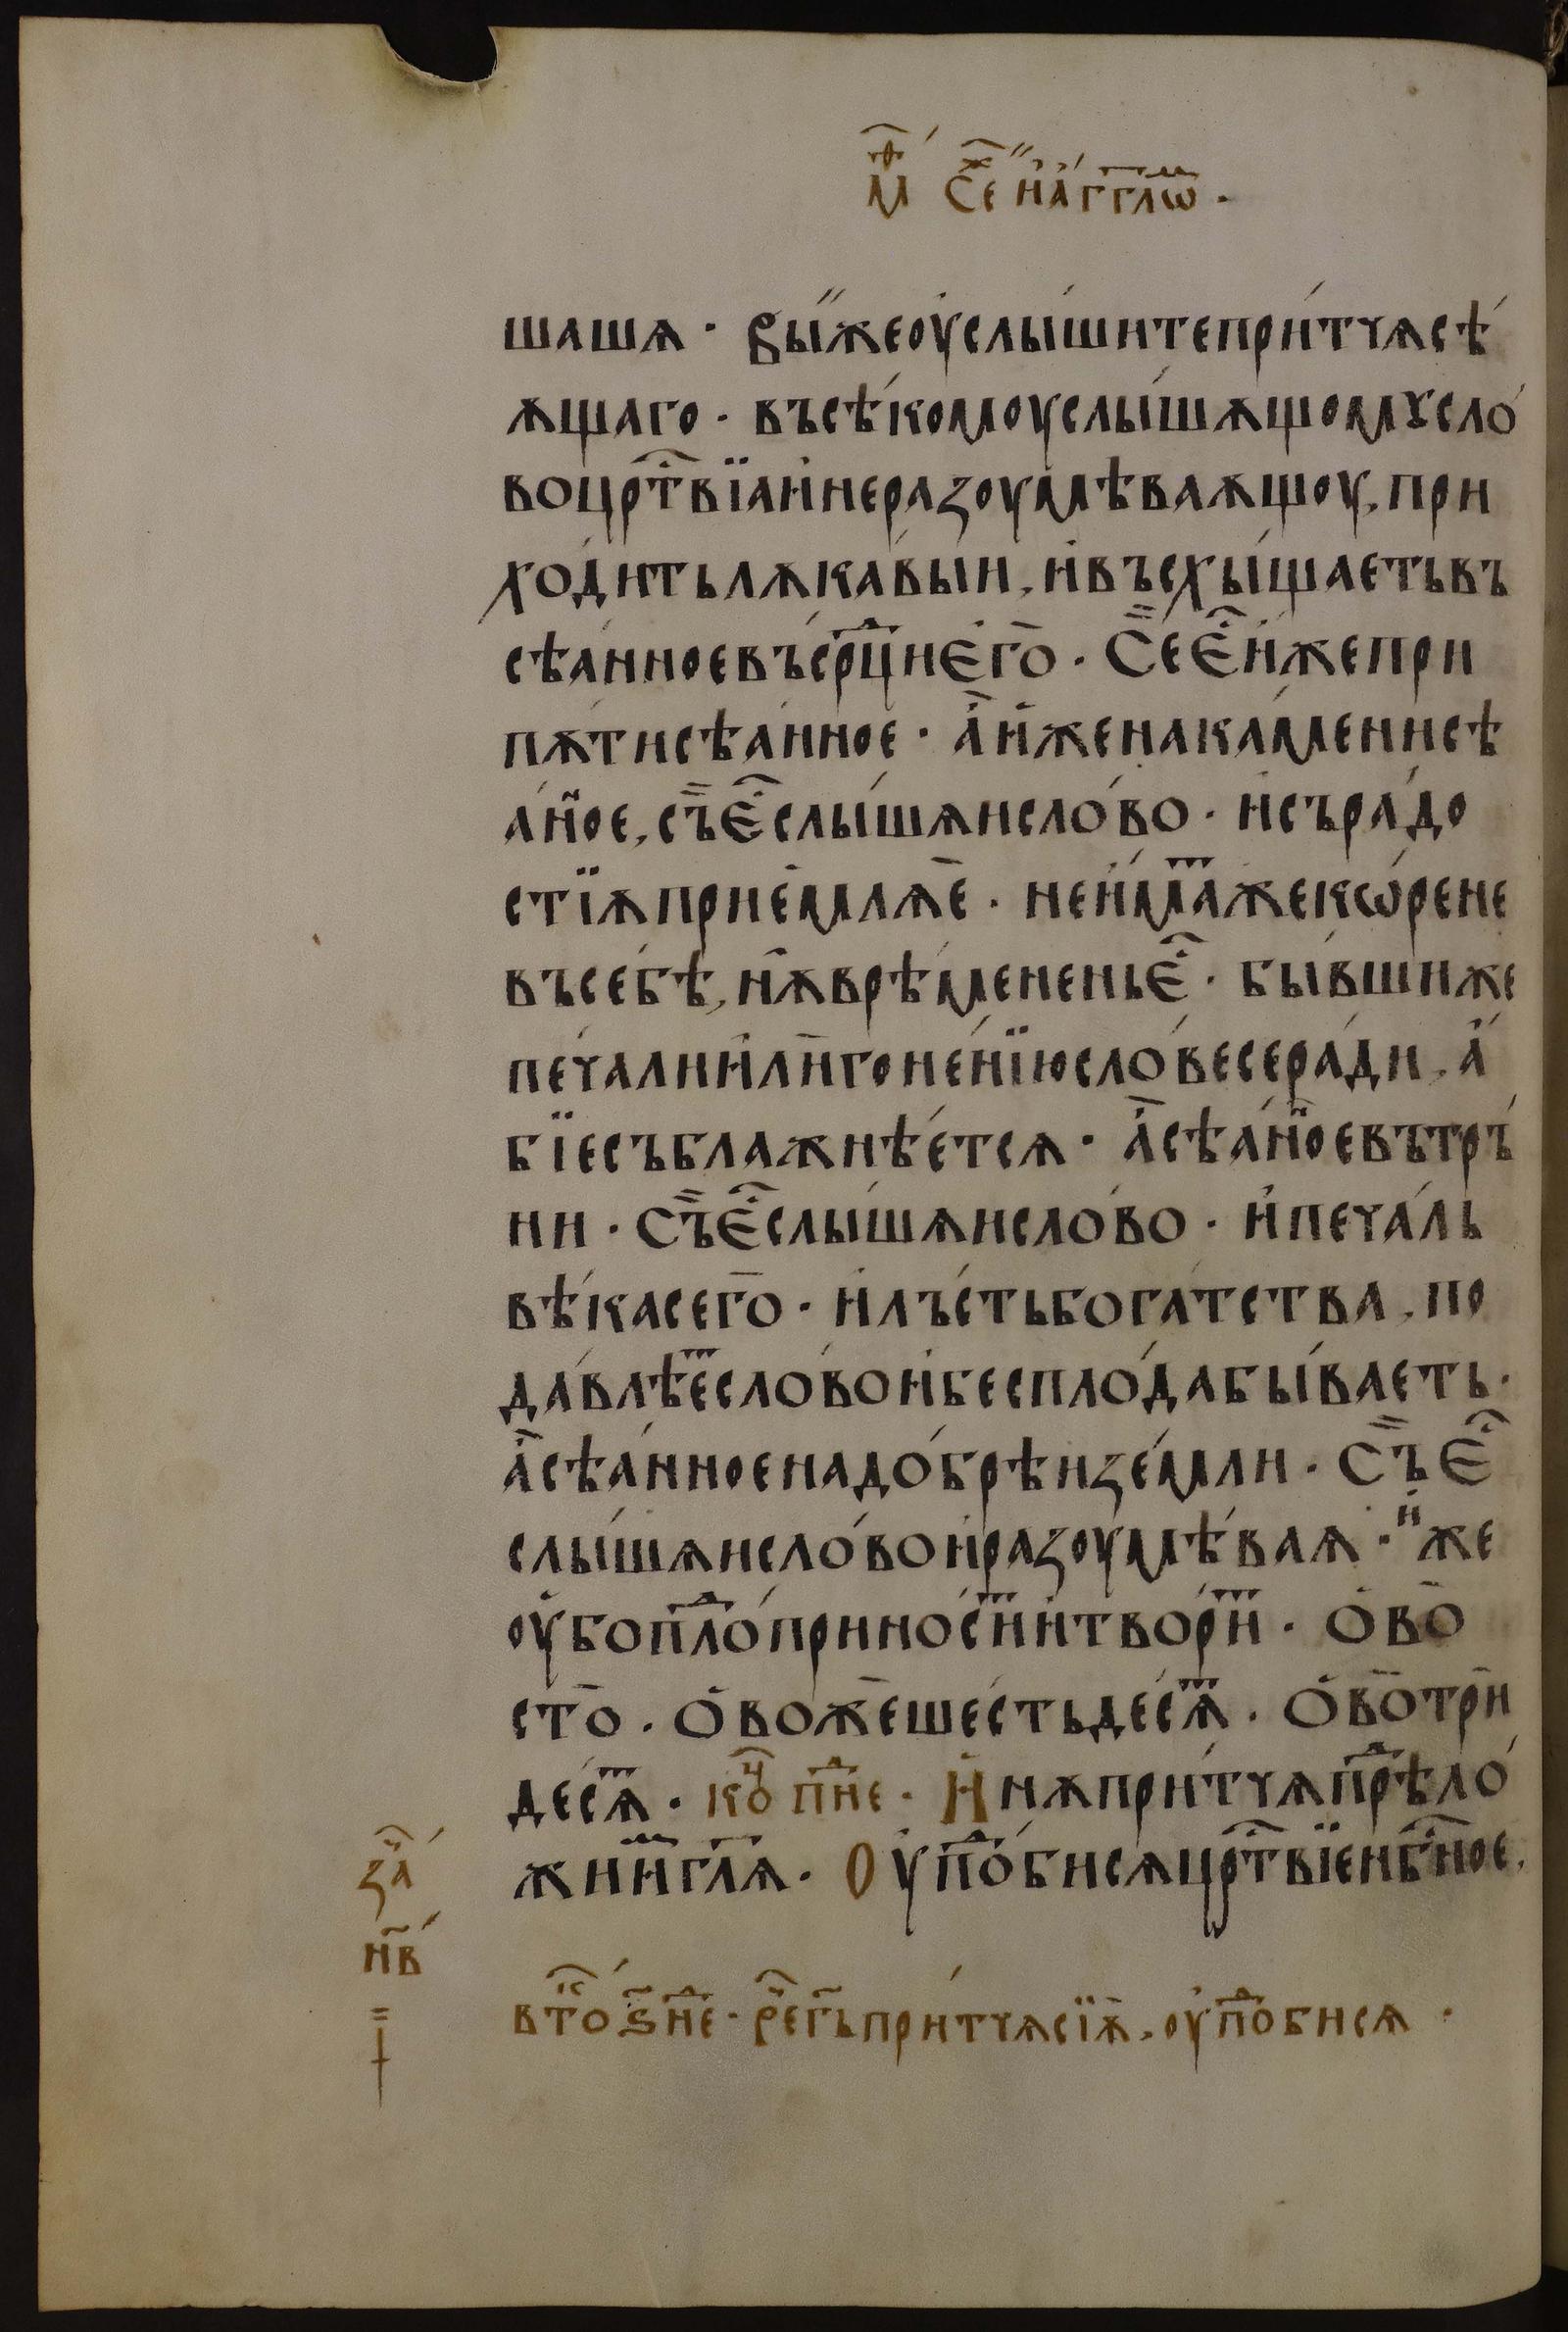 М҃ѳ ⷭ҇жⷷ҇е и҆́агг҃лⷨѡ.
шашѧ · Вы́жеоу҆слы́шитепри́тчѧсѣ́
ѫщаго · въсѣ́комоуслы́шѧщомꙋсло́
воцрⷭ҇твїаи҆неразоумѣваѫщоу, при
хо́дитьлѫка́выи, и҆въсхы́щаетьвъ
сѣа́нноевъсрⷣциЕго҆̀ · СеЕⷭ҇и҆́жепри
пѫ́тисѣа́нное · а҆̀и҆́женака́менисѣ
а́н̾ое, съЕⷭ҇слы́шѧисло́во · и҆съра́до
стїѫприе́млѧе҆̀ · неи҆́маⷮжекѡ́рене
въсебѣ̀, нѫ̀врѣ́мененьЕⷭ҇ · бы́вшиже
печалии҆лѝгоне́нїюсло́весера́ди, а҆́
бїесъблажнѣ́етсѧ · а҆̀сѣа́н̾оевътръ́
нии · съЕⷭ҇слы́шѧисло́во · и҆печа́ль
вѣ́касего̀ · и҆лъ́стьбога́тства, по
да́влѣеⷮсло́вои҆беспло́дабы́ваеть ·
а҆̀сѣа́нноенадо́брѣизе́мли · СъЕⷭ҇
слы́шѧисло́вои҆разоумѣ́ваѫ · иже
оу҆боплоⷣприно́сиⷮи҆твориⷮ · О҆во̀
сто̀ · О҆вожѐше́стьдесѧⷮ · О҆во̀трѝ
десѧⷮ · коⷰ҇ пнеⷣ · И҆нѫпри́тчѧпрⷣѣло́
жиⷨи҆гл҃ѧ · Оу҆поⷣбисѧцрⷭ҇твїенбⷭ҇ное,
за҆ⷱ҇
н҃в
втоⷬ҇ ѕ҃ неⷣ · реⷱ҇ г҃ь при́тчѧсїѫ̀, оу҆поⷣбисѧ ·